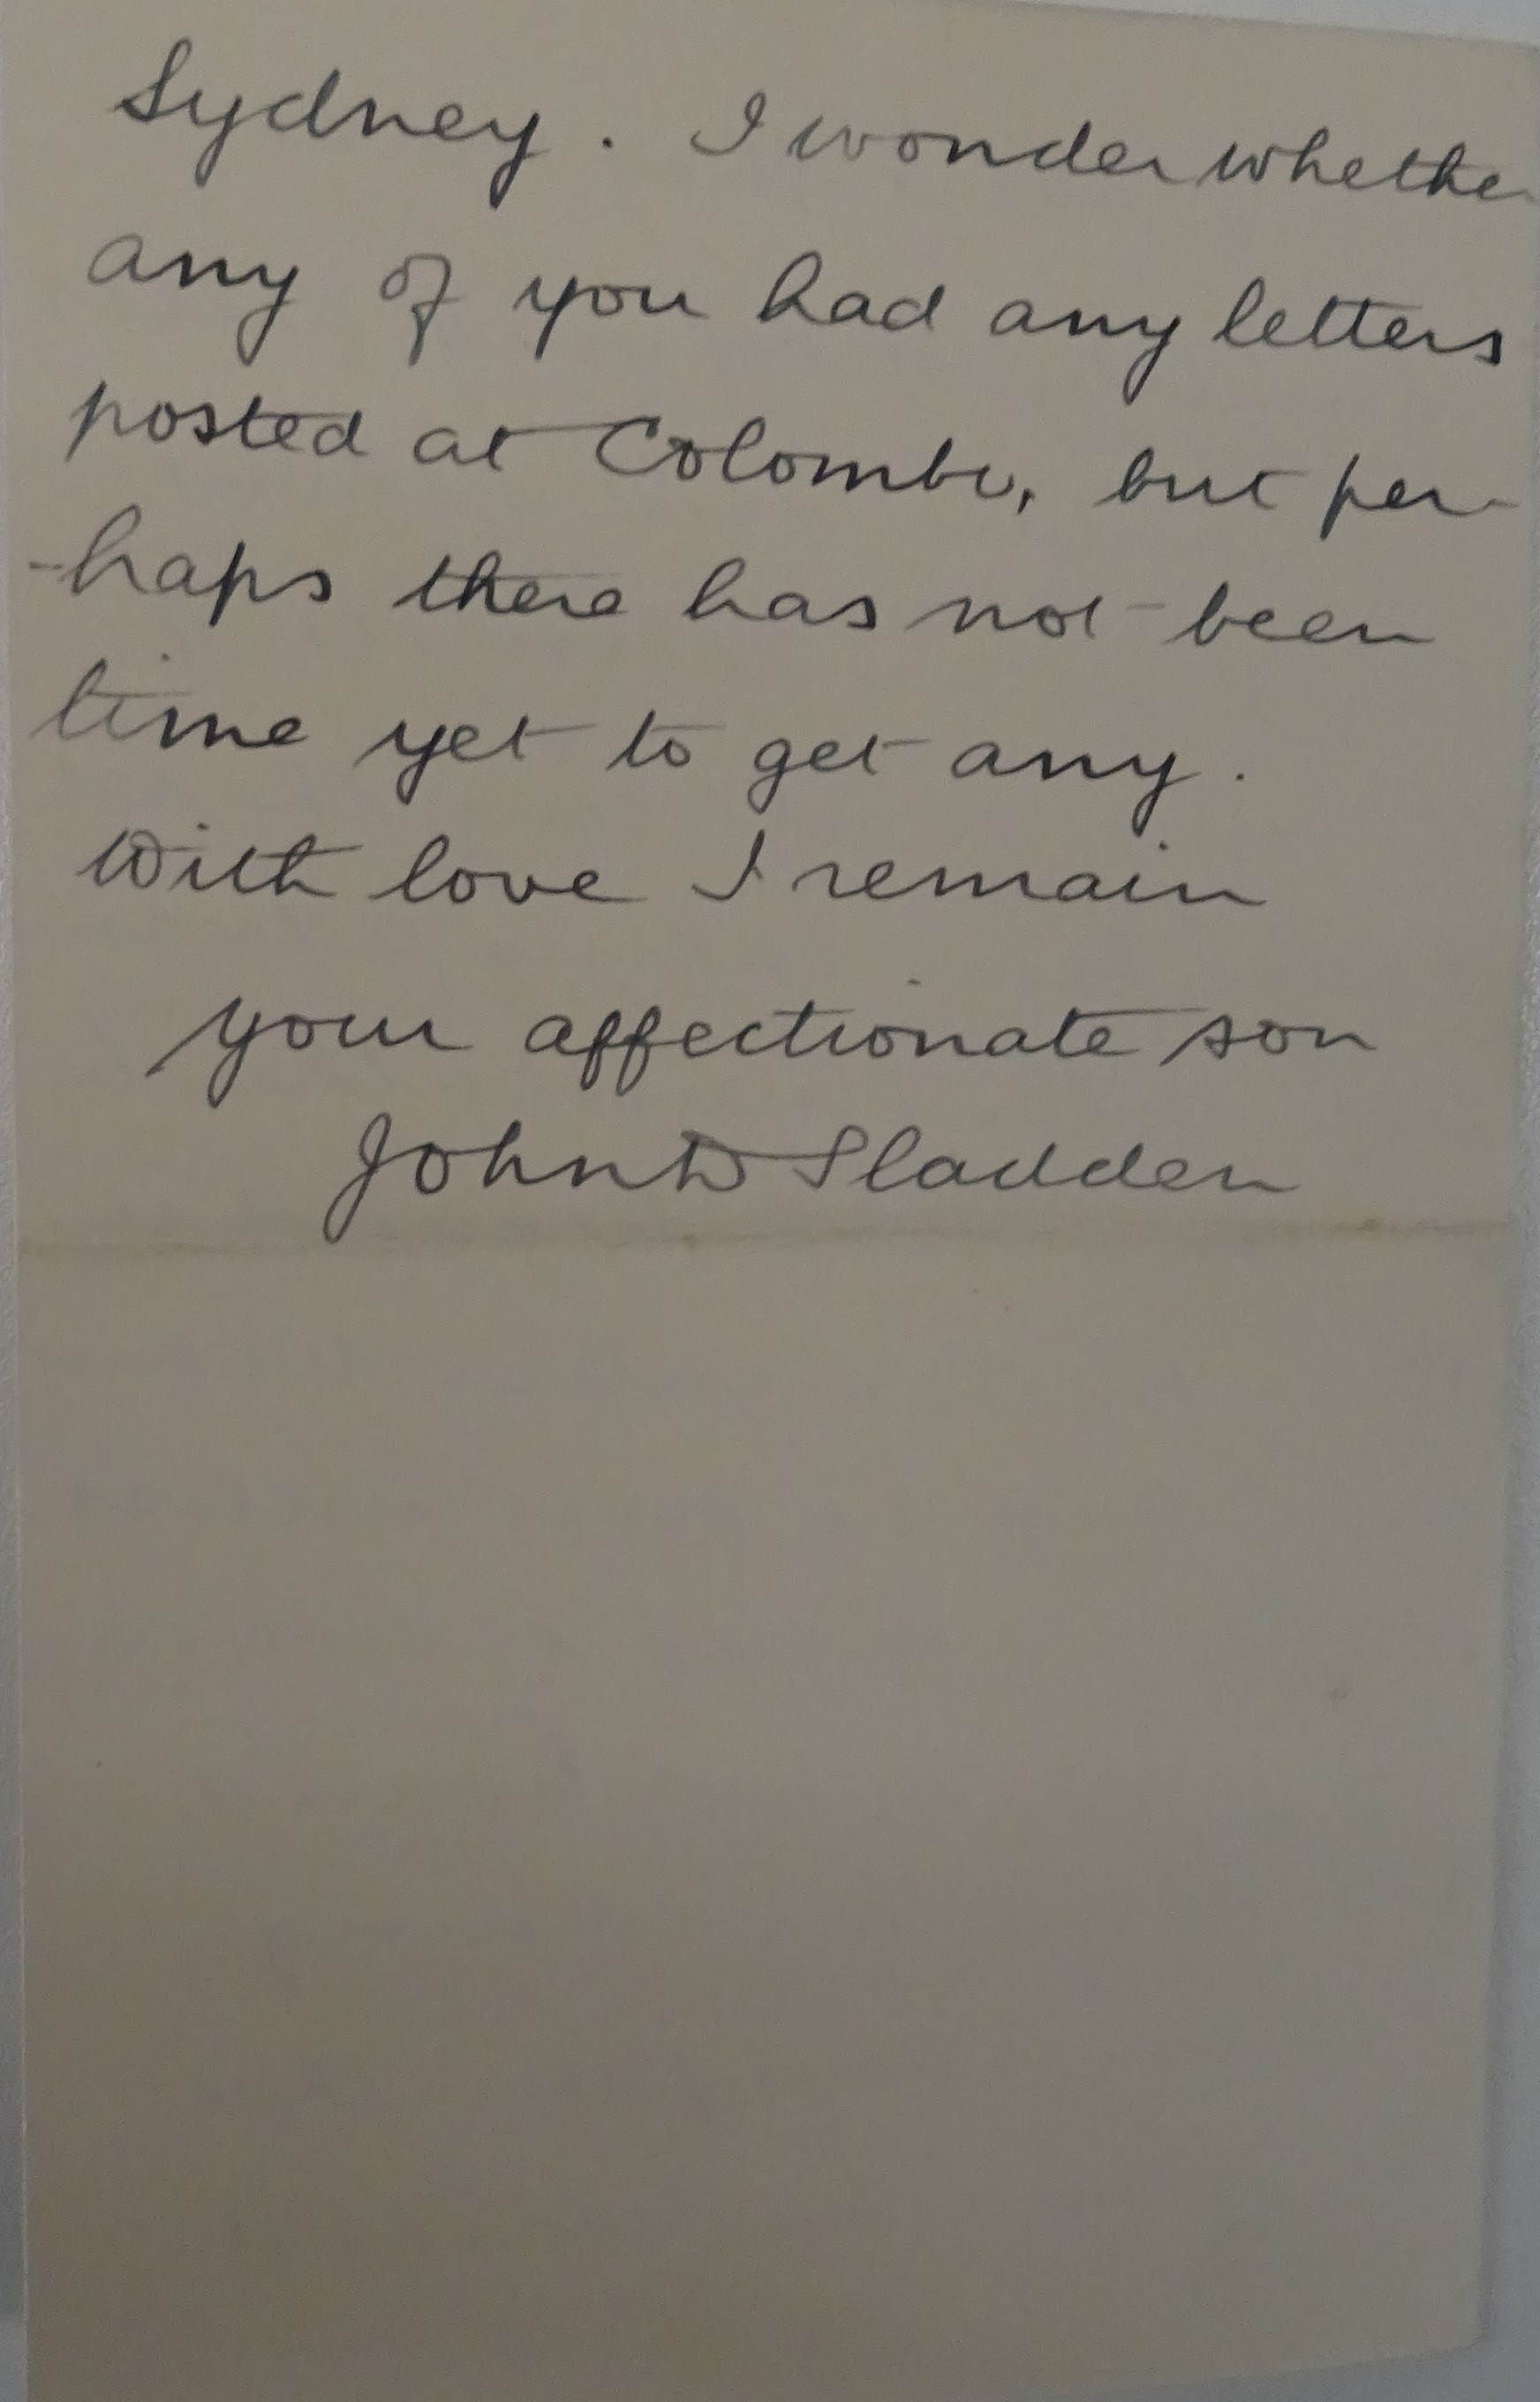 Sydney. I wonder whether
any of you had any letters
posted at Colombo, but per-
-haps there has not been
time yet to get any.
With love I remain
your affectionate son
John D Sladden